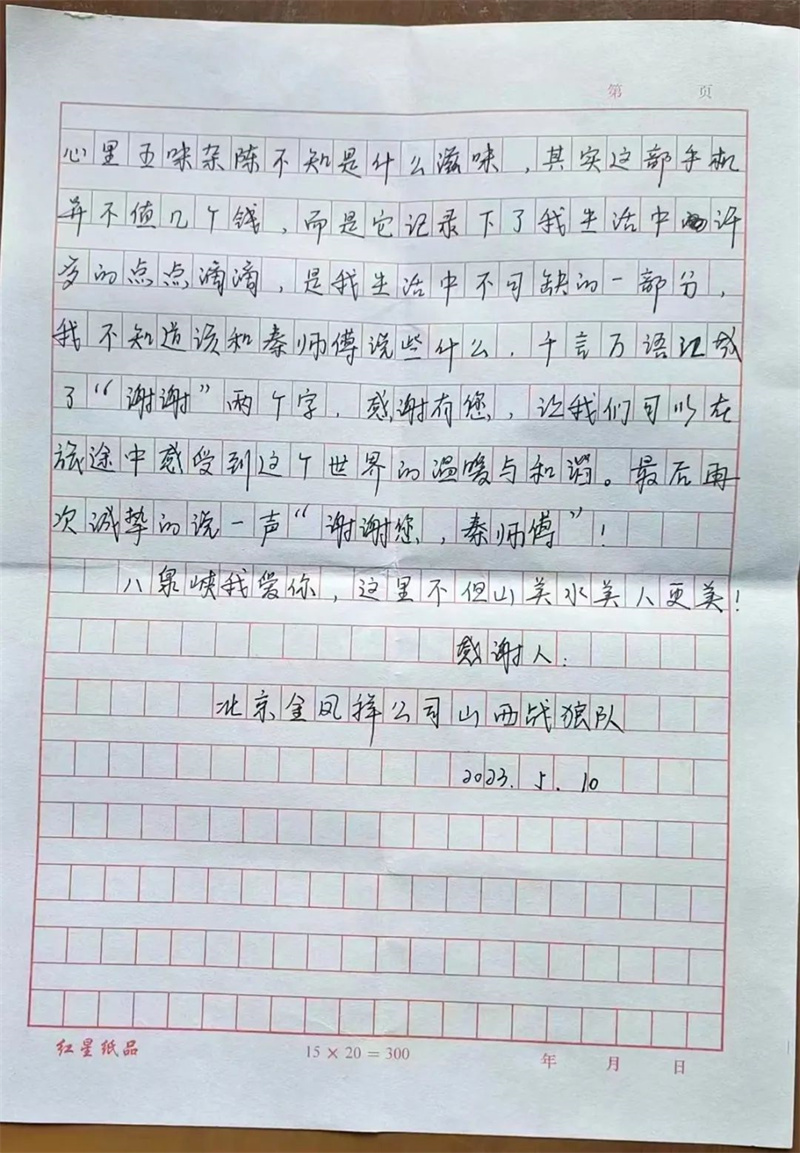 第 页
心里五味杂陈不知是什么滋味，其实这部手机
并不值几个钱，而是它记录下了我生活中许
多的点点滴滴，是我生活中不可缺的一部分，
我不知道该和秦师傅说些什么，千言万语汇成
了“谢谢”两个字，感谢有您，让我们可以在
旅途中感受到这个世界的温暖与和谐。最后再
次诚挚的说一声“谢谢您，秦师傅”！
八泉峡我爱你，这里不但山美水美人更美！
感谢人：
北京金凤祥公司山西战狼队
2023.5.10
红星纸品 15×20=300 年 月 日